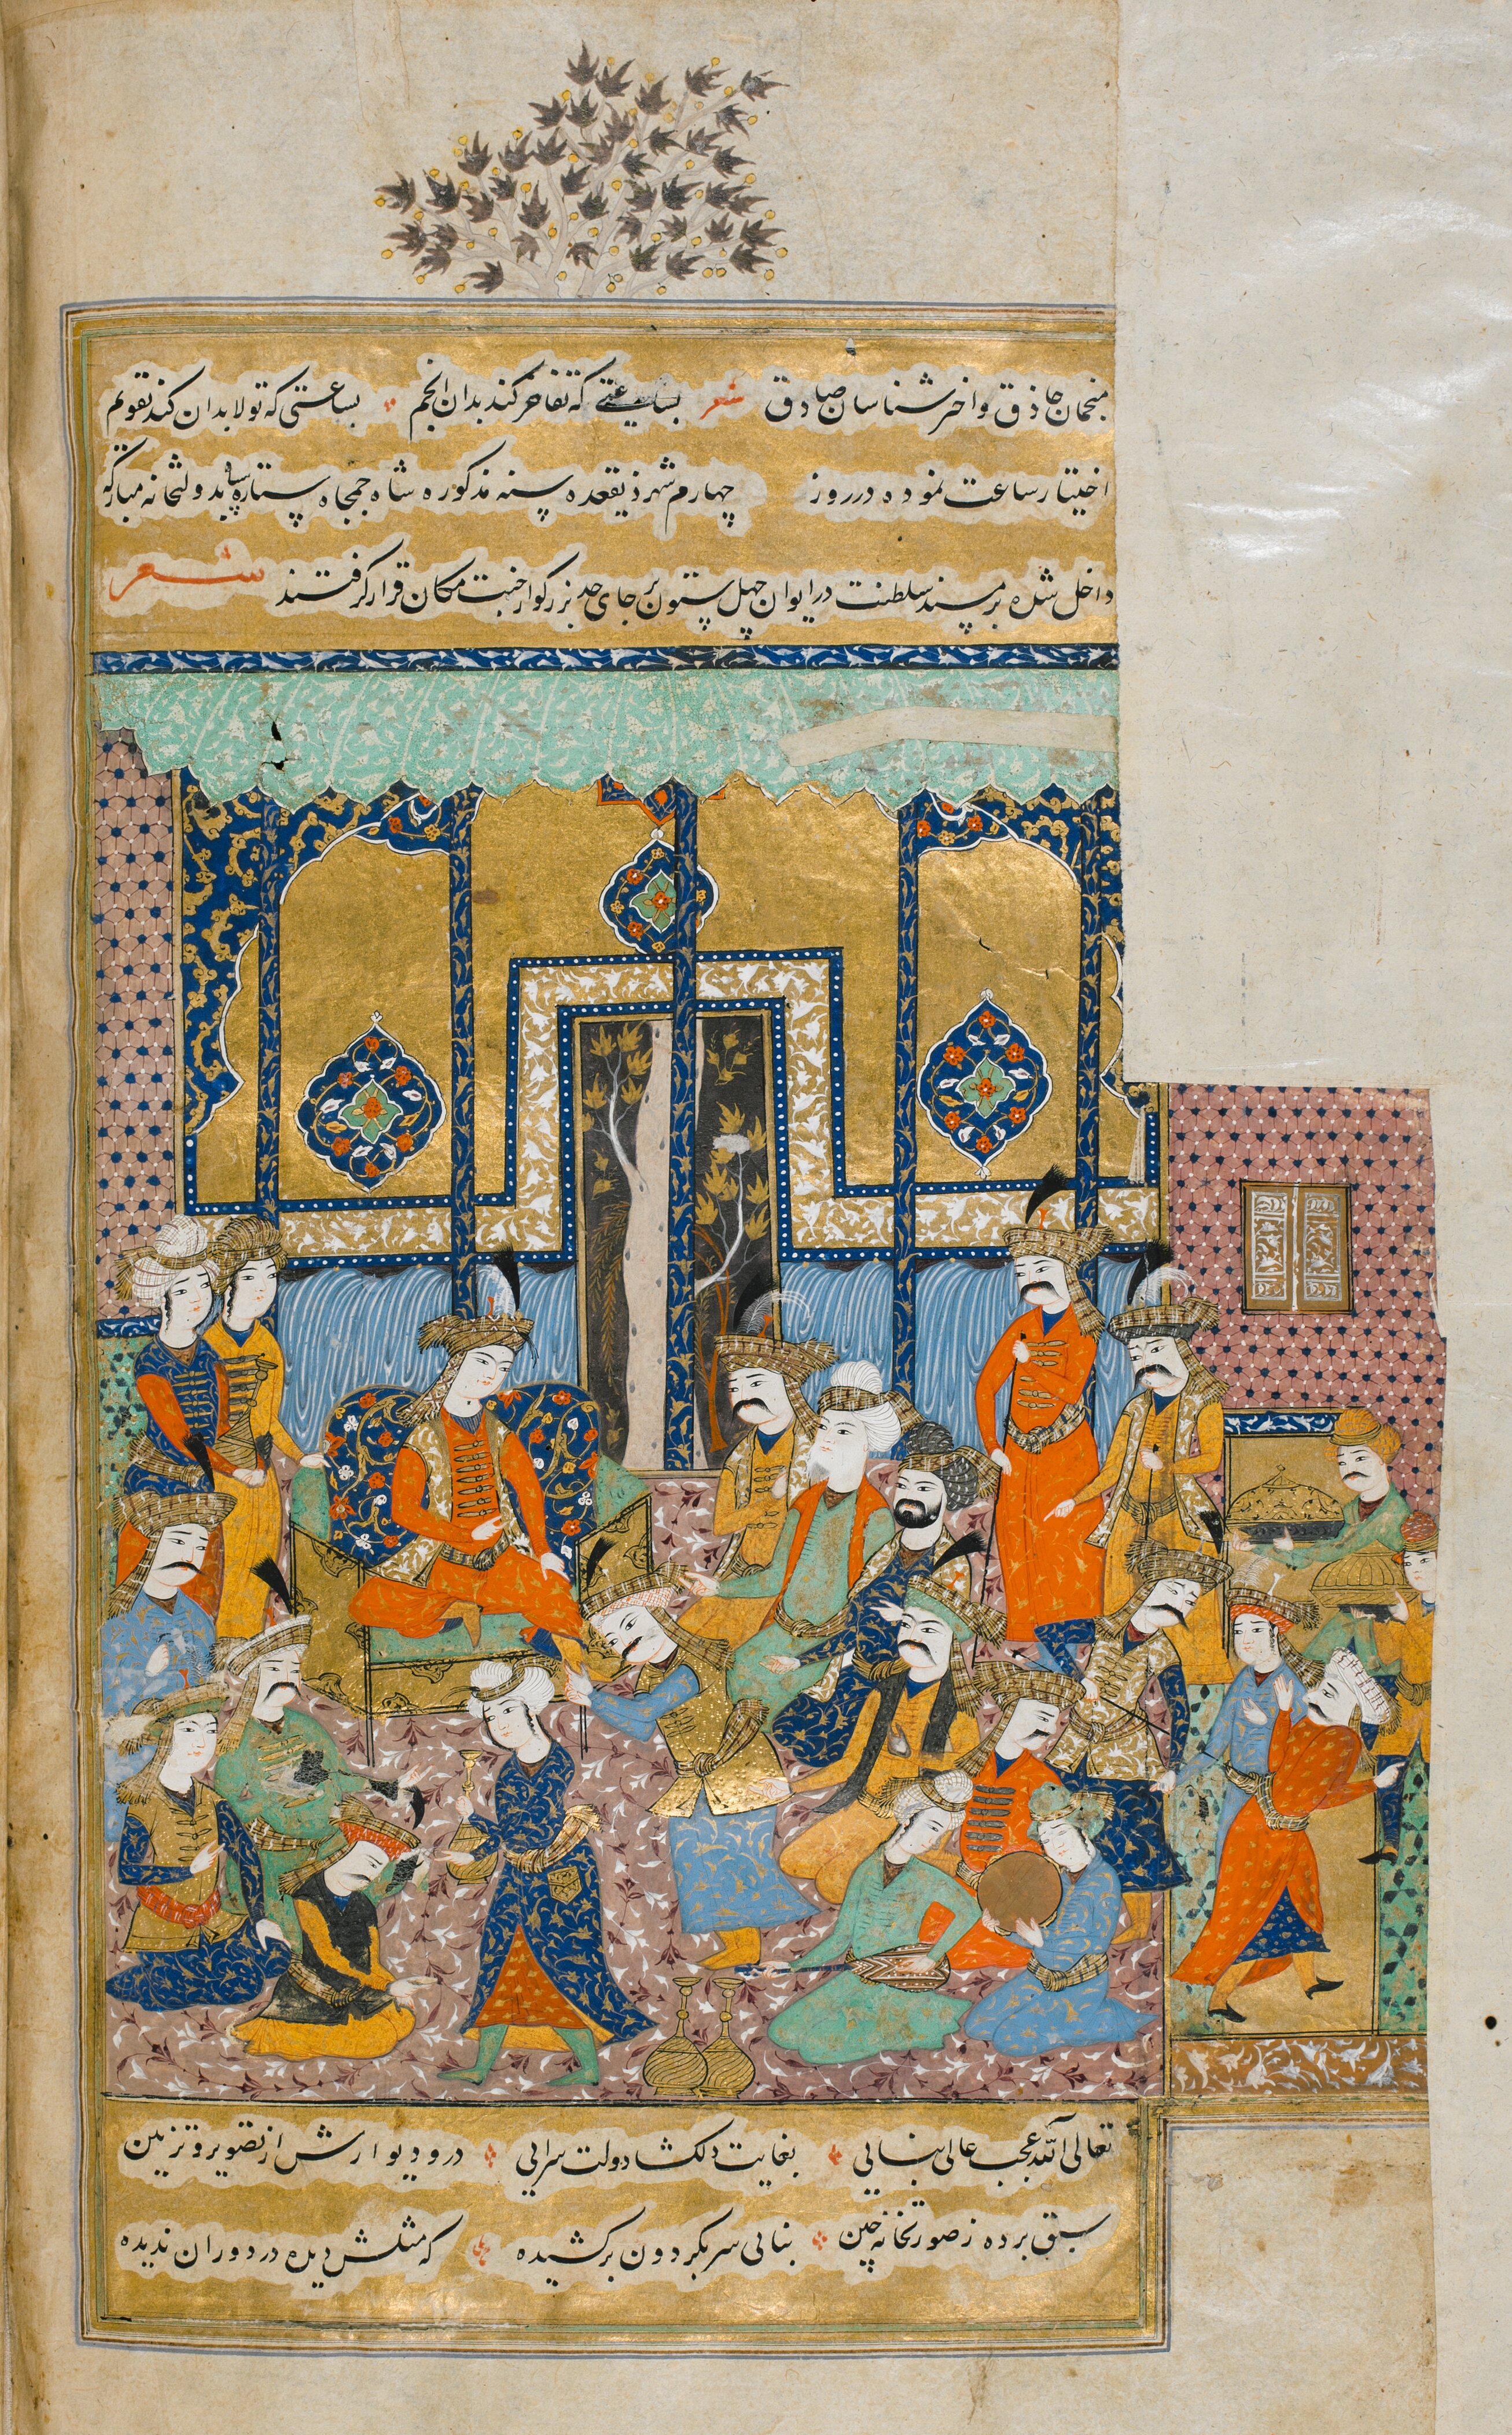 منجمان حاذق و اختر شناسان صادق شعر بساعتی که تفاخر کند بدان انجم بساعتی که تولا بدان کند تقویم
اختیار ساعت نموده در روز چهارم شهر ذیقعده سنه مذکوره شاه جمجاه ستاره سپاه بدولتخانه مبارکه
داخل شده بر مسند سلطنت در ایوان چهل ستون بر جای جد بزرگوار جنت مکان قرار گرفتند شعر
تعالی الله عجب عالی بنایی بغایت دلگشا دولت سرایی در و دیوارش از تصویر و تزیین
سبق برده ز صورتخانه چین بنایی سر بگردون برکشیده که مثلش دیده در دوران ندیده